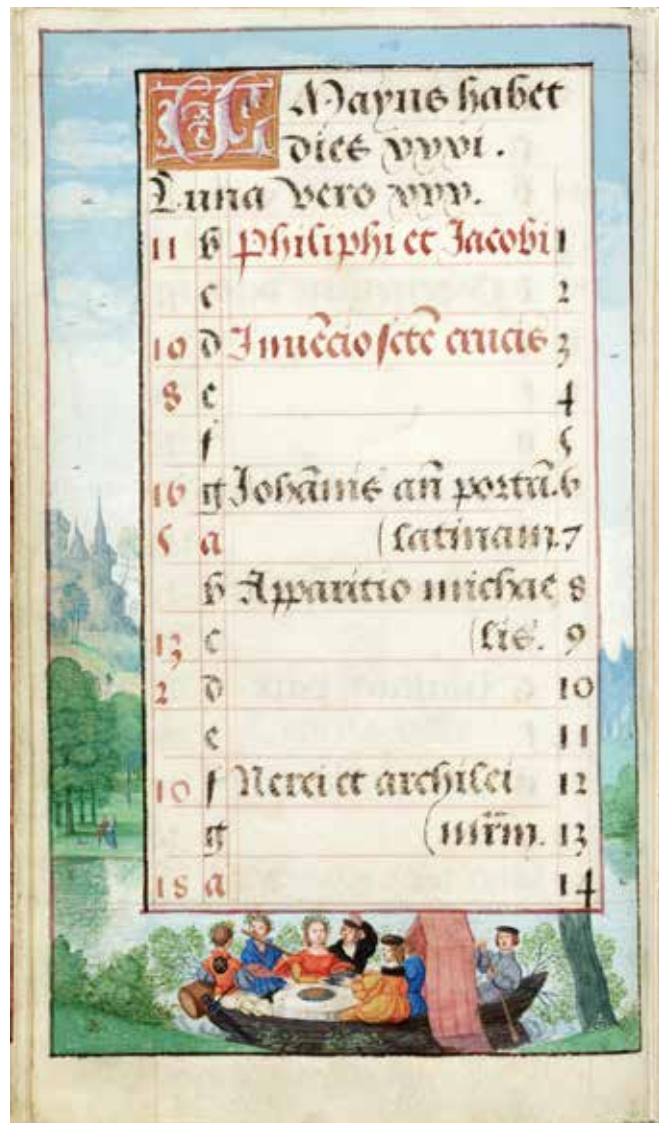 KL Mayus habet
dies xxxi.
Luna vero xxx.
11 b Philiphi et Jacobi 1
c 2
10 d Invēcio sctē crucis 3
8 e 4
f 5
16 g Johānis añ portā. 6
5 a (latinam. 7
b Apparitio michae 8
13 c (lis. 9
2 d 10
e 11
10 f Nerei et archilei 12
g (mr̄m. 13
18 a 14